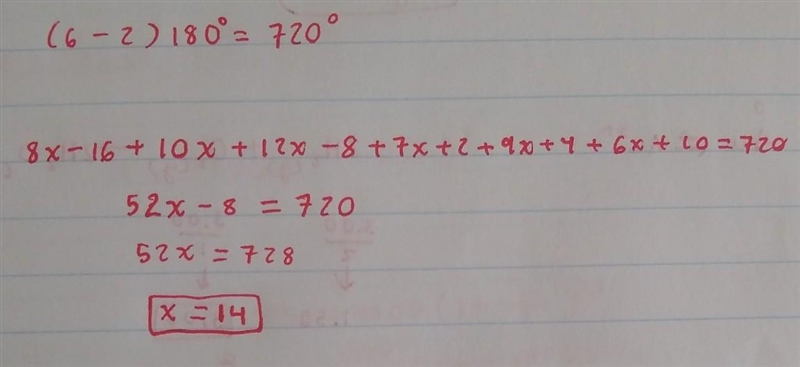 (6-2)180°=720°
8x-16+10x+12x-8+7x+2+9x+4+6x+10=720
52x-8=720
52x=728
x=14